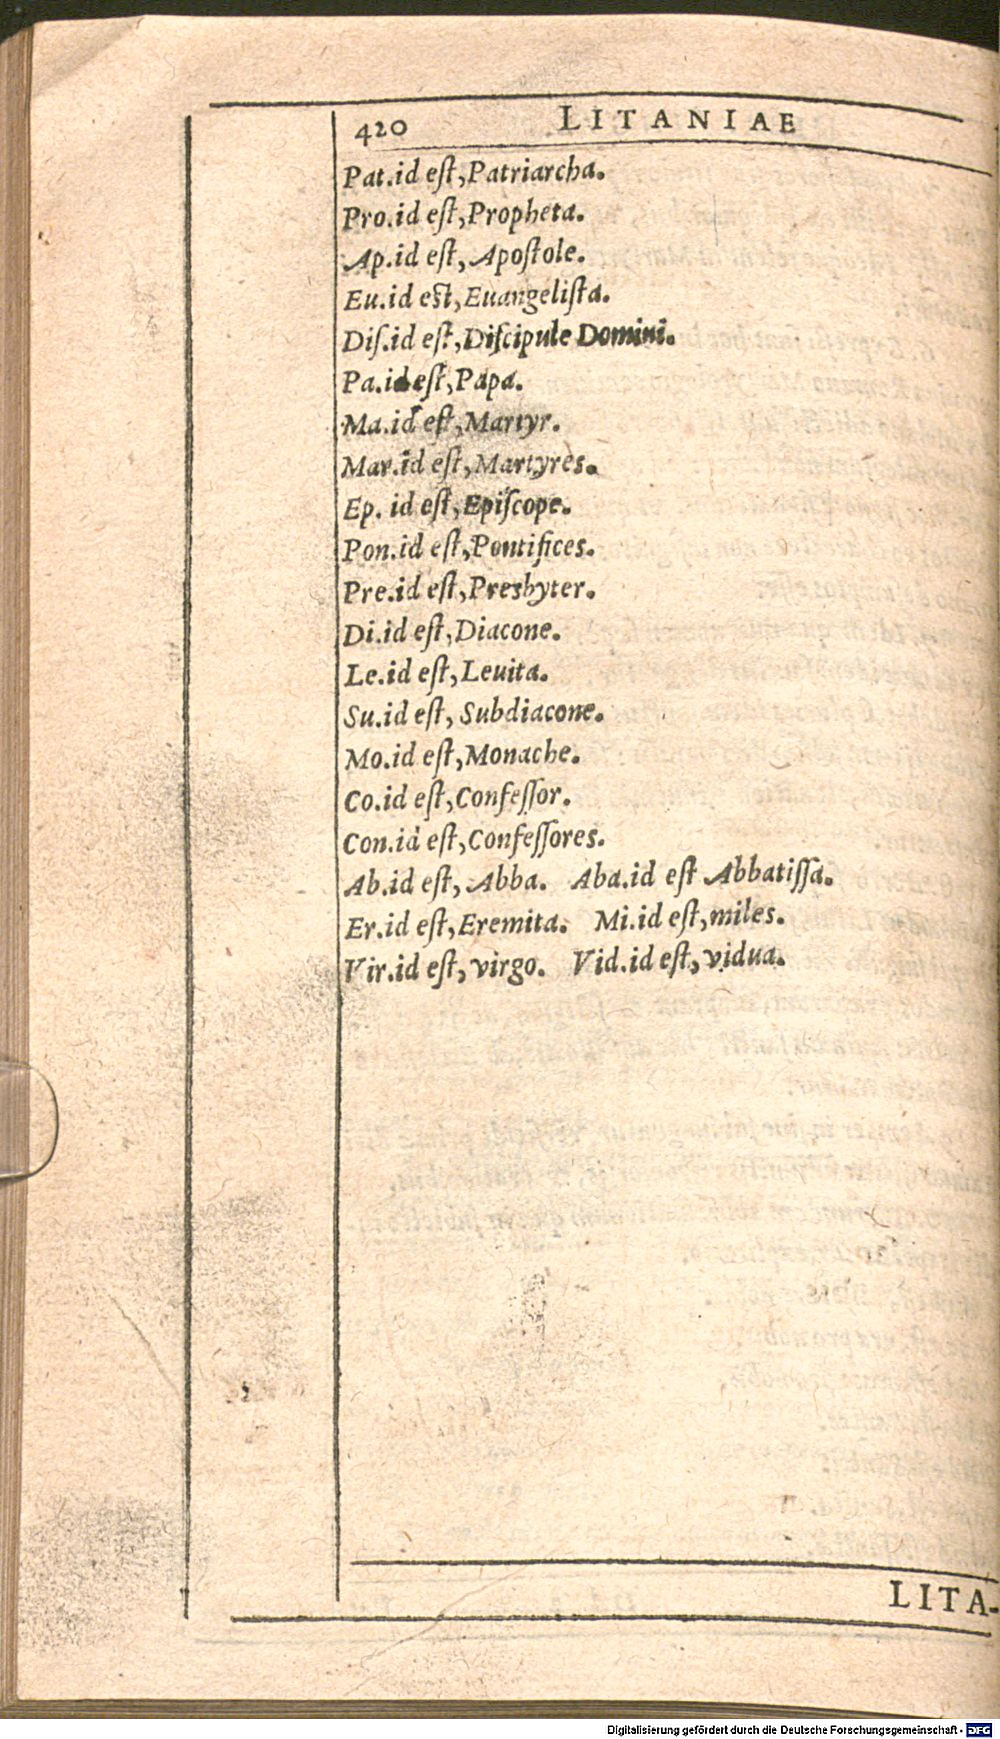 420 LITANIAE
Pat.id eſt,Patriarcha.
Pro.id eſt,Propheta.
Ap.id eſt, Apoſtole.
Eu.id eſt,Euangeliſta.
Diſ.id eſt,Diſcipule Domini.
Pa.id eſt,Papa.
Ma.id eſt,Martyr.
Mar.id eſt,Martyres.
Ep. id eſt,Epiſcope.
Pon.id eſt,Pontifices.
Pre.id eſt,Presbyter.
Di.id eſt,Diacone.
Le.id eſt,Leuita.
Su.id eſt, Subdiacone.
Mo.id eſt,Monache.
Co.id eſt,Confeſſor.
Con.id eſt,Confeſſores.
Ab.id eſt, Abba. Aba.id eſt Abbatiſſa.
Er.id eſt,Eremita. Mi.id eſt,miles.
Vir.id eſt,virgo. Vid.id eſt,vidua.
LITA-
Digitalisierung gefördert durch die Deutsche Forschungsgemeinschaft - DFG